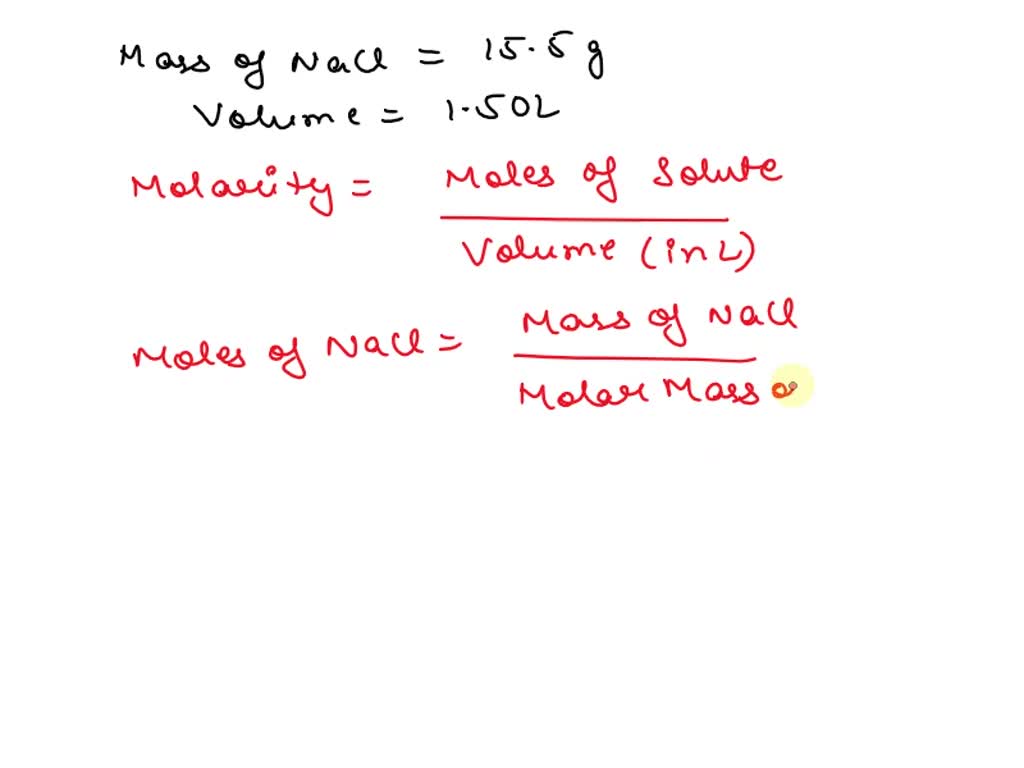 Mass of NaCl = 15.5 g
Volume = 1.50L
Molarity = Moles of Solute
Volume (in L)
Moles of NaCl = Mass of NaCl
Molar Mass o